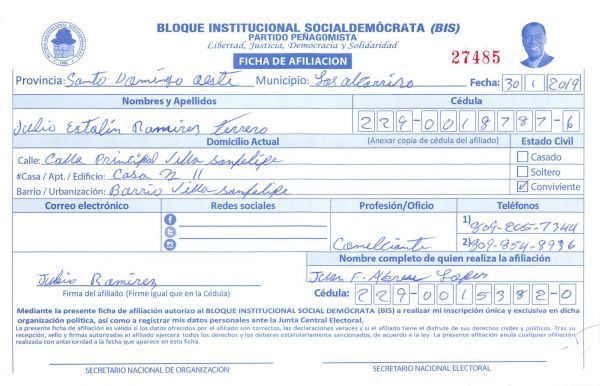 BLOQUE INSTITUCIONAL SOCIALDEMÓCRATA (BIS)
PARTIDO PEÑAGOMISTA
Libertad, Justicia, Democracia y Solidaridad
FICHA DE AFILIACION
27485
Provincia: Santo Domingo oeste Municipio: Los alcarrizo Fecha: 30 1 2019
Nombres y Apellidos Cédula
Julio Estalin Ramirez Ferrero 229-0018787-6
Domicilio Actual (Anexar copia de cédula del afiliado) Estado Civil
Calle: Calle Principal Villa sanfelipe Casado
#Casa / Apt. / Edificio: Casa N 11 Soltero
Barrio / Urbanización: Barrio Villa sanfelipe Conviviente
Correo electrónico Redes sociales Profesión/Oficio Teléfonos
1) 809-205-7344
Comelciante 2) 809-854-8936
Nombre completo de quien realiza la afiliación
Julio Ramirez Juan F. Abreu Lopez
Firma del afiliado (Firme igual que en la Cédula) Cédula: 229-0015382-0
Mediante la presente ficha de afiliación autorizo al BLOQUE INSTITUCIONAL SOCIAL DEMÓCRATA (BIS) a realizar mi inscripción única y exclusiva en dicha
organización política, así como a registrar mis datos personales ante la Junta Central Electoral.
La presente ficha de afiliación es válida si los datos ofrecidos por el afiliado son correctos, las declaraciones veraces y si el afiliado tiene el disfrute de sus derechos civiles y políticos. Tras su
recepción, sello y firmas autorizadas el afiliado ejercerá todos los derechos y los deberes estatutariamente sancionados, de acuerdo a la ley. La presente afiliación anula cualquier afiliación
realizada con anterioridad a la fecha que aparece en esta ficha.
SECRETARIO NACIONAL DE ORGANIZACIÓN SECRETARIO NACIONAL ELECTORAL